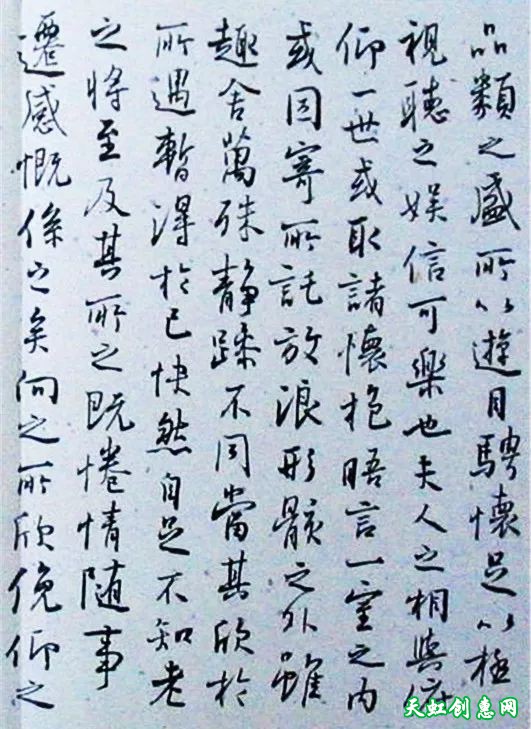 品類之盛所以遊目騁懷足以極
視聽之娱信可樂也夫人之相與俯
仰一世或取諸懷抱晤言一室之内
或因寄所託放浪形骸之外雖
趣舍萬殊静躁不同當其欣於
所遇暫得於己快然自足不知老
之將至及其所之既惓情随事
遷感慨係之矣向之所欣俛仰之
天虹创惠网